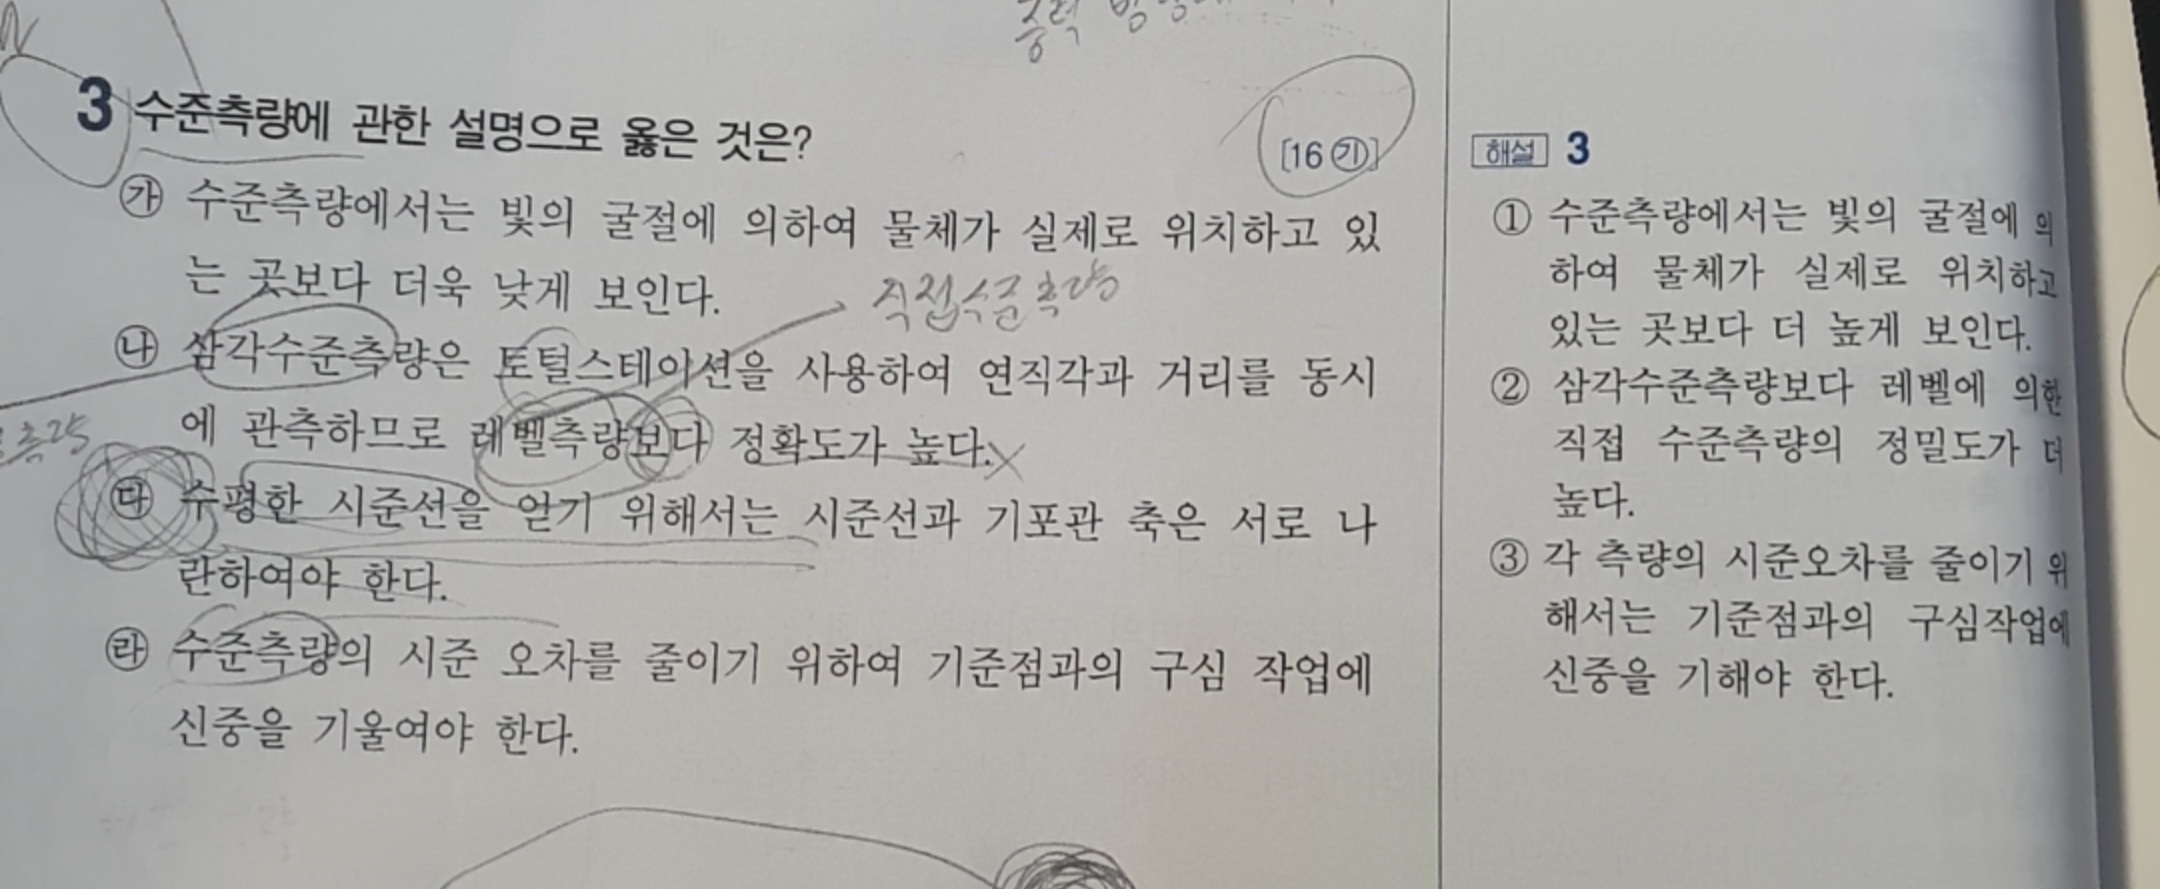 3 수준측량에 관한 설명으로 옳은 것은? [16 ㉮]
㉮ 수준측량에서는 빛의 굴절에 의하여 물체가 실제로 위치하고 있
는 곳보다 더욱 낮게 보인다.
직접수준측량
㉯ 삼각수준측량은 토털스테이션을 사용하여 연직각과 거리를 동시
에 관측하므로 레벨측량보다 정확도가 높다.
㉰ 수평한 시준선을 얻기 위해서는 시준선과 기포관 축은 서로 나
란하여야 한다.
㉱ 수준측량의 시준 오차를 줄이기 위하여 기준점과의 구심 작업에
신중을 기울여야 한다.
해설 3
① 수준측량에서는 빛의 굴절에 의
하여 물체가 실제로 위치하고
있는 곳보다 더 높게 보인다.
② 삼각수준측량보다 레벨에 의한
직접 수준측량의 정밀도가 더
높다.
③ 각 측량의 시준오차를 줄이기 위
해서는 기준점과의 구심작업에
신중을 기해야 한다.